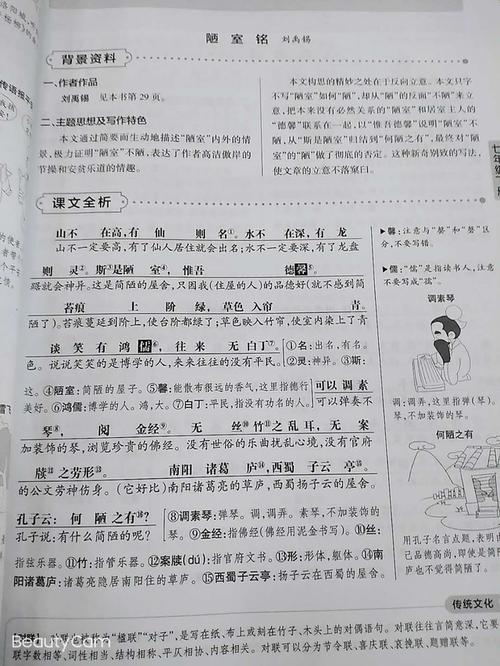 陋室铭 刘禹锡
背景资料
一、作者作品
刘禹锡 见本书第29页。
二、主题思想及写作特色
本文通过简要而生动地描述“陋室”内外的情
景,极力证明“陋室”不陋,表达了作者高洁傲岸的
节操和安贫乐道的情趣。
本文构思的精妙之处在于反向立意。本文只字
不写“陋室”如何“陋”,却从“陋”的反面“不陋”来立
意,把本来没有必然关系的“陋室”和居室主人的
“德馨”联系在一起,以“惟吾德馨”说明“陋室”不
陋,从“斯是陋室”归结到“何陋之有”,最终对“陋
室”的“陋”做了彻底的否定。这种新奇别致的写法,
使文章的立意不落窠臼。
课文全析
山不在高,有仙则名①。水不在深,有龙
山不一定要高,有了仙人居住就会出名;水不一定要深,有了龙盘
则灵②。斯③是陋室④,惟吾德馨⑤
踞就会神异。这是简陋的屋舍,只因我(住屋的人)的品德好(就不感到简
苔痕上阶绿,草色入帘青。
陋了)。苔痕蔓延到阶上,使台阶都绿了;草色映入竹帘,使室内染上了青
谈笑有鸿儒⑥,往来无白丁⑦。
色。说说笑笑的是博学的人,来来往往的没有平民。
①名:出名,有名。
②灵:神异。③斯:
这。④陋室:简陋的屋子。⑤馨:能散布很远的香气,这里指德行
美好。⑥鸿儒:博学的人。鸿,大。⑦白丁:平民,指没有功名的人。
可以调素
可以弹奏不
琴⑧,阅金经⑨。无丝⑩竹⑪之乱耳,无案
加装饰的琴,浏览珍贵的佛经。没有世俗的乐曲扰乱心境,没有官府
牍⑫之劳形⑬。南阳诸葛庐⑭,西蜀子云亭⑮。
的公文劳神伤身。(它好比)南阳诸葛亮的草庐,西蜀扬子云的屋舍。
孔子云:何陋之有⑯?
孔子说:有什么简陋的呢?
⑧调素琴:弹琴。调,调弄。素琴,不加装饰的
琴。⑨金经:指佛经(佛经用泥金书写)。⑩丝:
指弦乐器。⑪竹:指管乐器。⑫案牍(dú):指官府文书。⑬形:形体,躯体。⑭南
阳诸葛庐:诸葛亮隐居南阳住的草庐。⑮西蜀子云亭:指扬子云在西蜀的屋舍。
▶馨:注意与“婺”和“磬”区
分,不要写错。
▶儒:“儒”是指读书人,注意
不要写成“孺”。
调素琴
调:调弄,这里指弹(琴)。
琴,不加装饰的琴。
何陋之有
用孔子名言点题,
己品德高尚,即使是简陋
庐也不觉得简陋了。
传统文化
对联,又称“楹联”“对子”,是写在纸、布上或刻在竹子、木头上的对偶语句。对联往往言简意深,它要
联字数相等、词性相当、结构相称、平仄相协、内容相关。对联可以分为春联、喜庆联、哀挽联、题赠联等。
BeautyCam